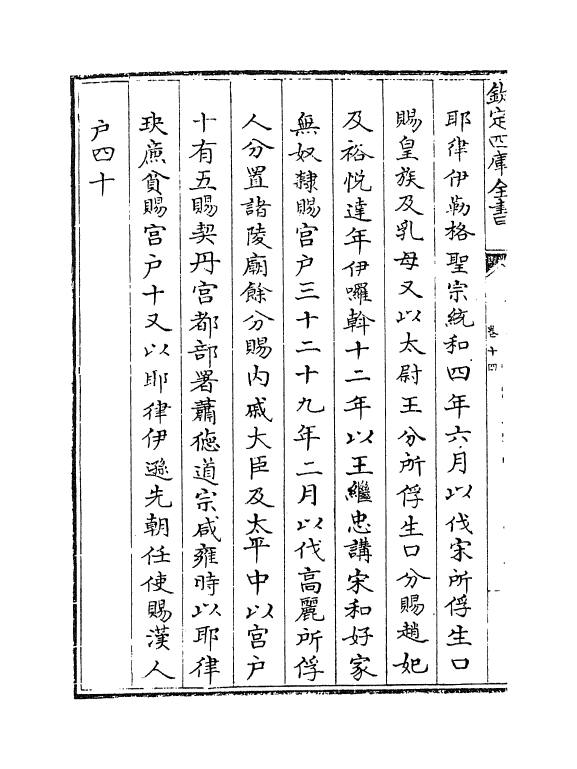 欽定四庫全書
卷十四
耶律伊勒格聖宗統和四年六月以伐宋所俘生口
賜皇族及乳母又以太尉王分所俘生口分賜趙妃
及裕悅達年伊囉斡十二年以王繼忠講宋和好家
無奴隸賜宮户三十二十九年二月以伐高麗所俘
人分置諸陵廟餘分賜内戚大臣及太平中以宮户
十有五賜契丹宮都部署蕭徳道宗咸雍時以耶律
玦廉貧賜宮户十又以耶律伊遜先朝任使賜漢人
户四十